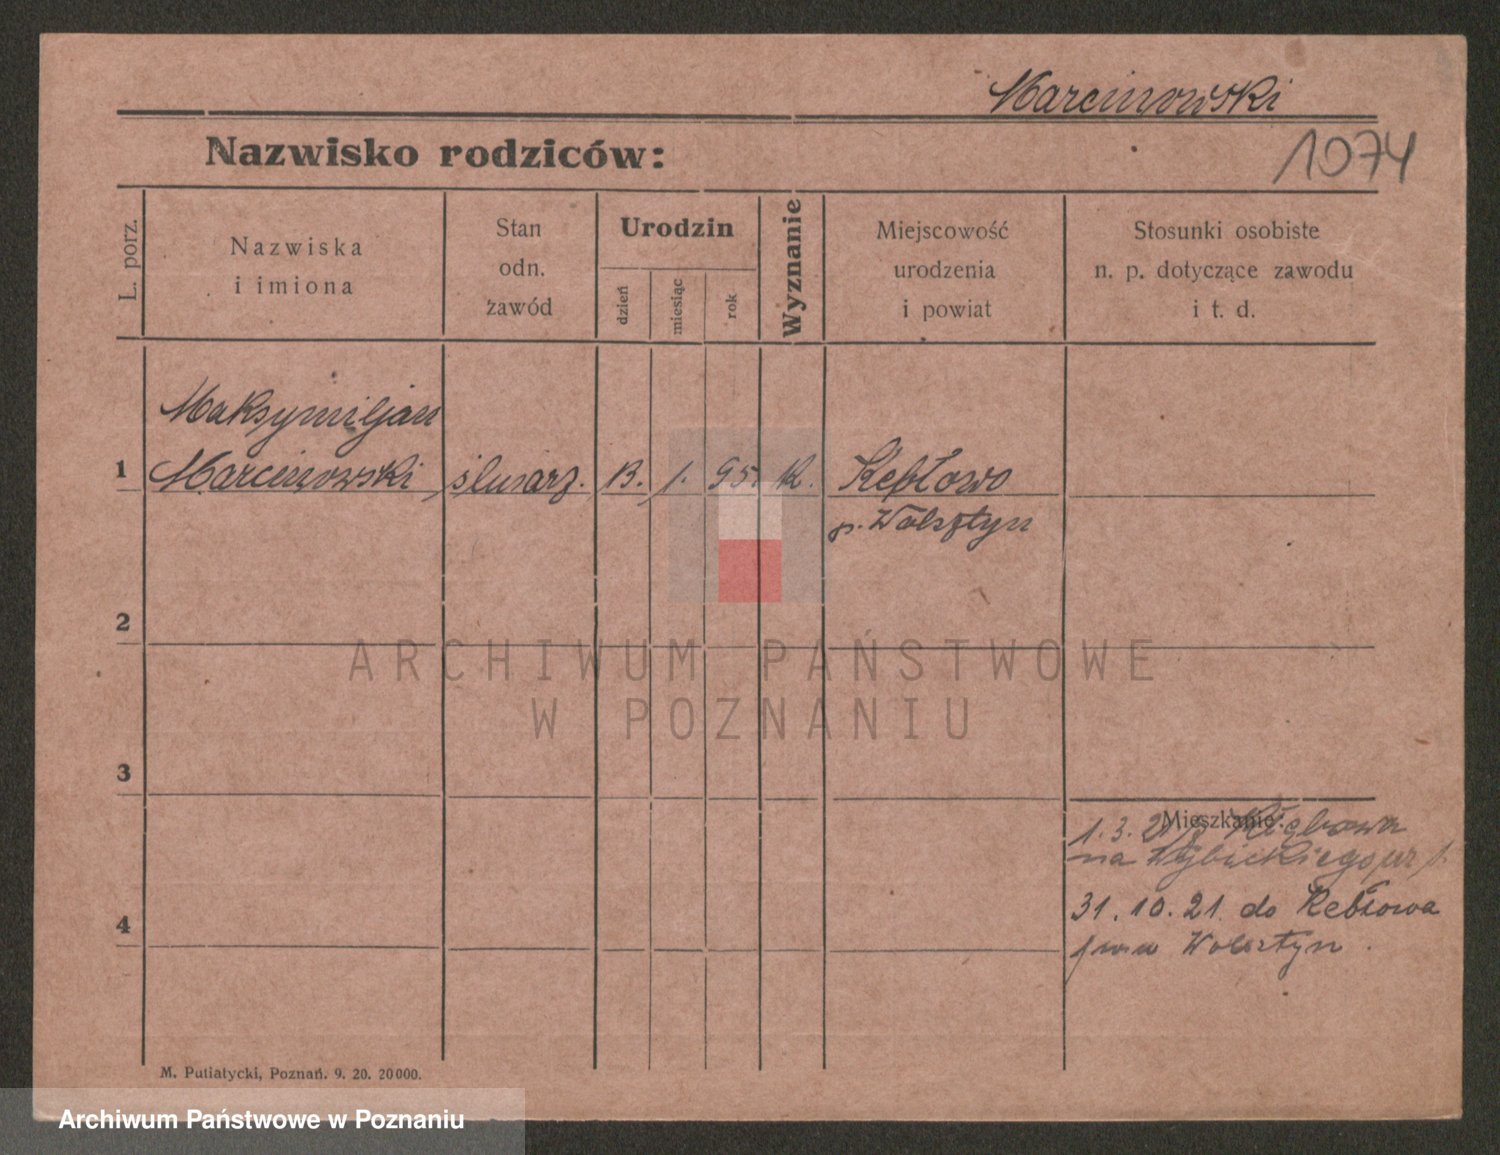 Marcinowski
Nazwisko rodziców:
1074
L. porz.
Nazwiska
i imiona
Stan
odn.
zawód
Urodzin
dzień
miesiąc
rok
Wyznanie
Miejscowość
urodzenia
i powiat
Stosunki osobiste
n. p. dotyczące zawodu
i t. d.
Maksymiljan
1 Marcinowski ślusarz. 13. 1. 95. K. Kębłowo
p. Wolsztyn
2
ARCHIWUM PAŃSTWOWE
W POZNANIU
3
Mieszkanie:
1. 3. 21
na Wybickiego nr 1.
31. 10. 21. do Kebłowa
4
Wolsztyn.
M. Putiatycki, Poznań. 9. 20. 20000.
Archiwum Państwowe w Poznaniu